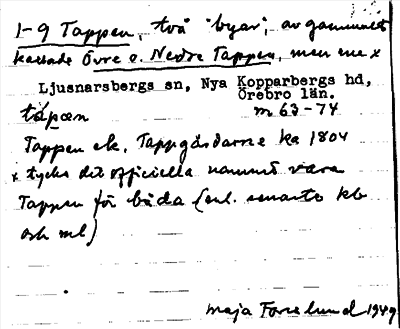 1-9 Tappen, två "byar", av gammalt
kallade Övre o. Nedre Tappen, men nu x
Ljusnarsbergs sn, Nya Kopparbergs hd,
Örebro län.
täpæn
m 63-74
Tappen ek. Tappgårdarne ka 1804
x tycks det officiella namnet vara
Tappen för båda (enl. senaste kb
och ml)
Maja Forslund 1949